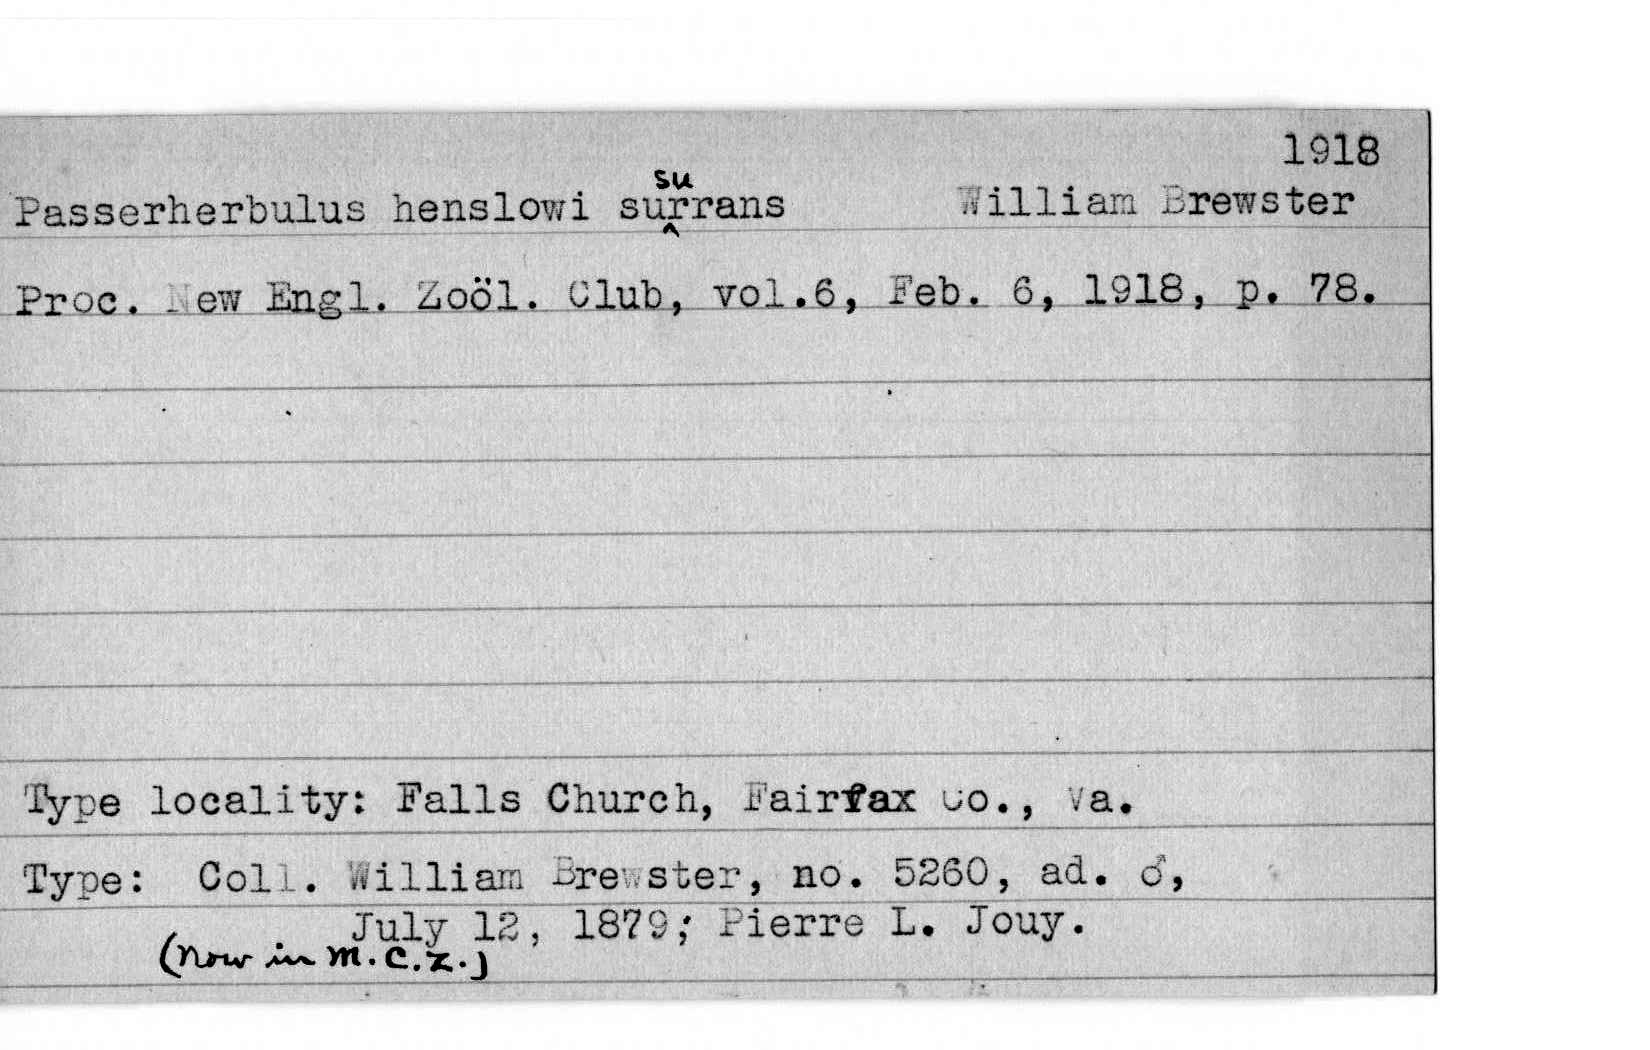 1918
su
Passerherbulus henslowi surrans William Brewster
^
Proc. New Engl. Zoöl. Club, vol.6, Feb. 6, 1918, p. 78.
Type locality: Falls Church, Fairfax Co., Va.
Type: Coll. William Brewster, no. 5260, ad. ♂,
July 12, 1879; Pierre L. Jouy.
(Now in M.C.Z.)